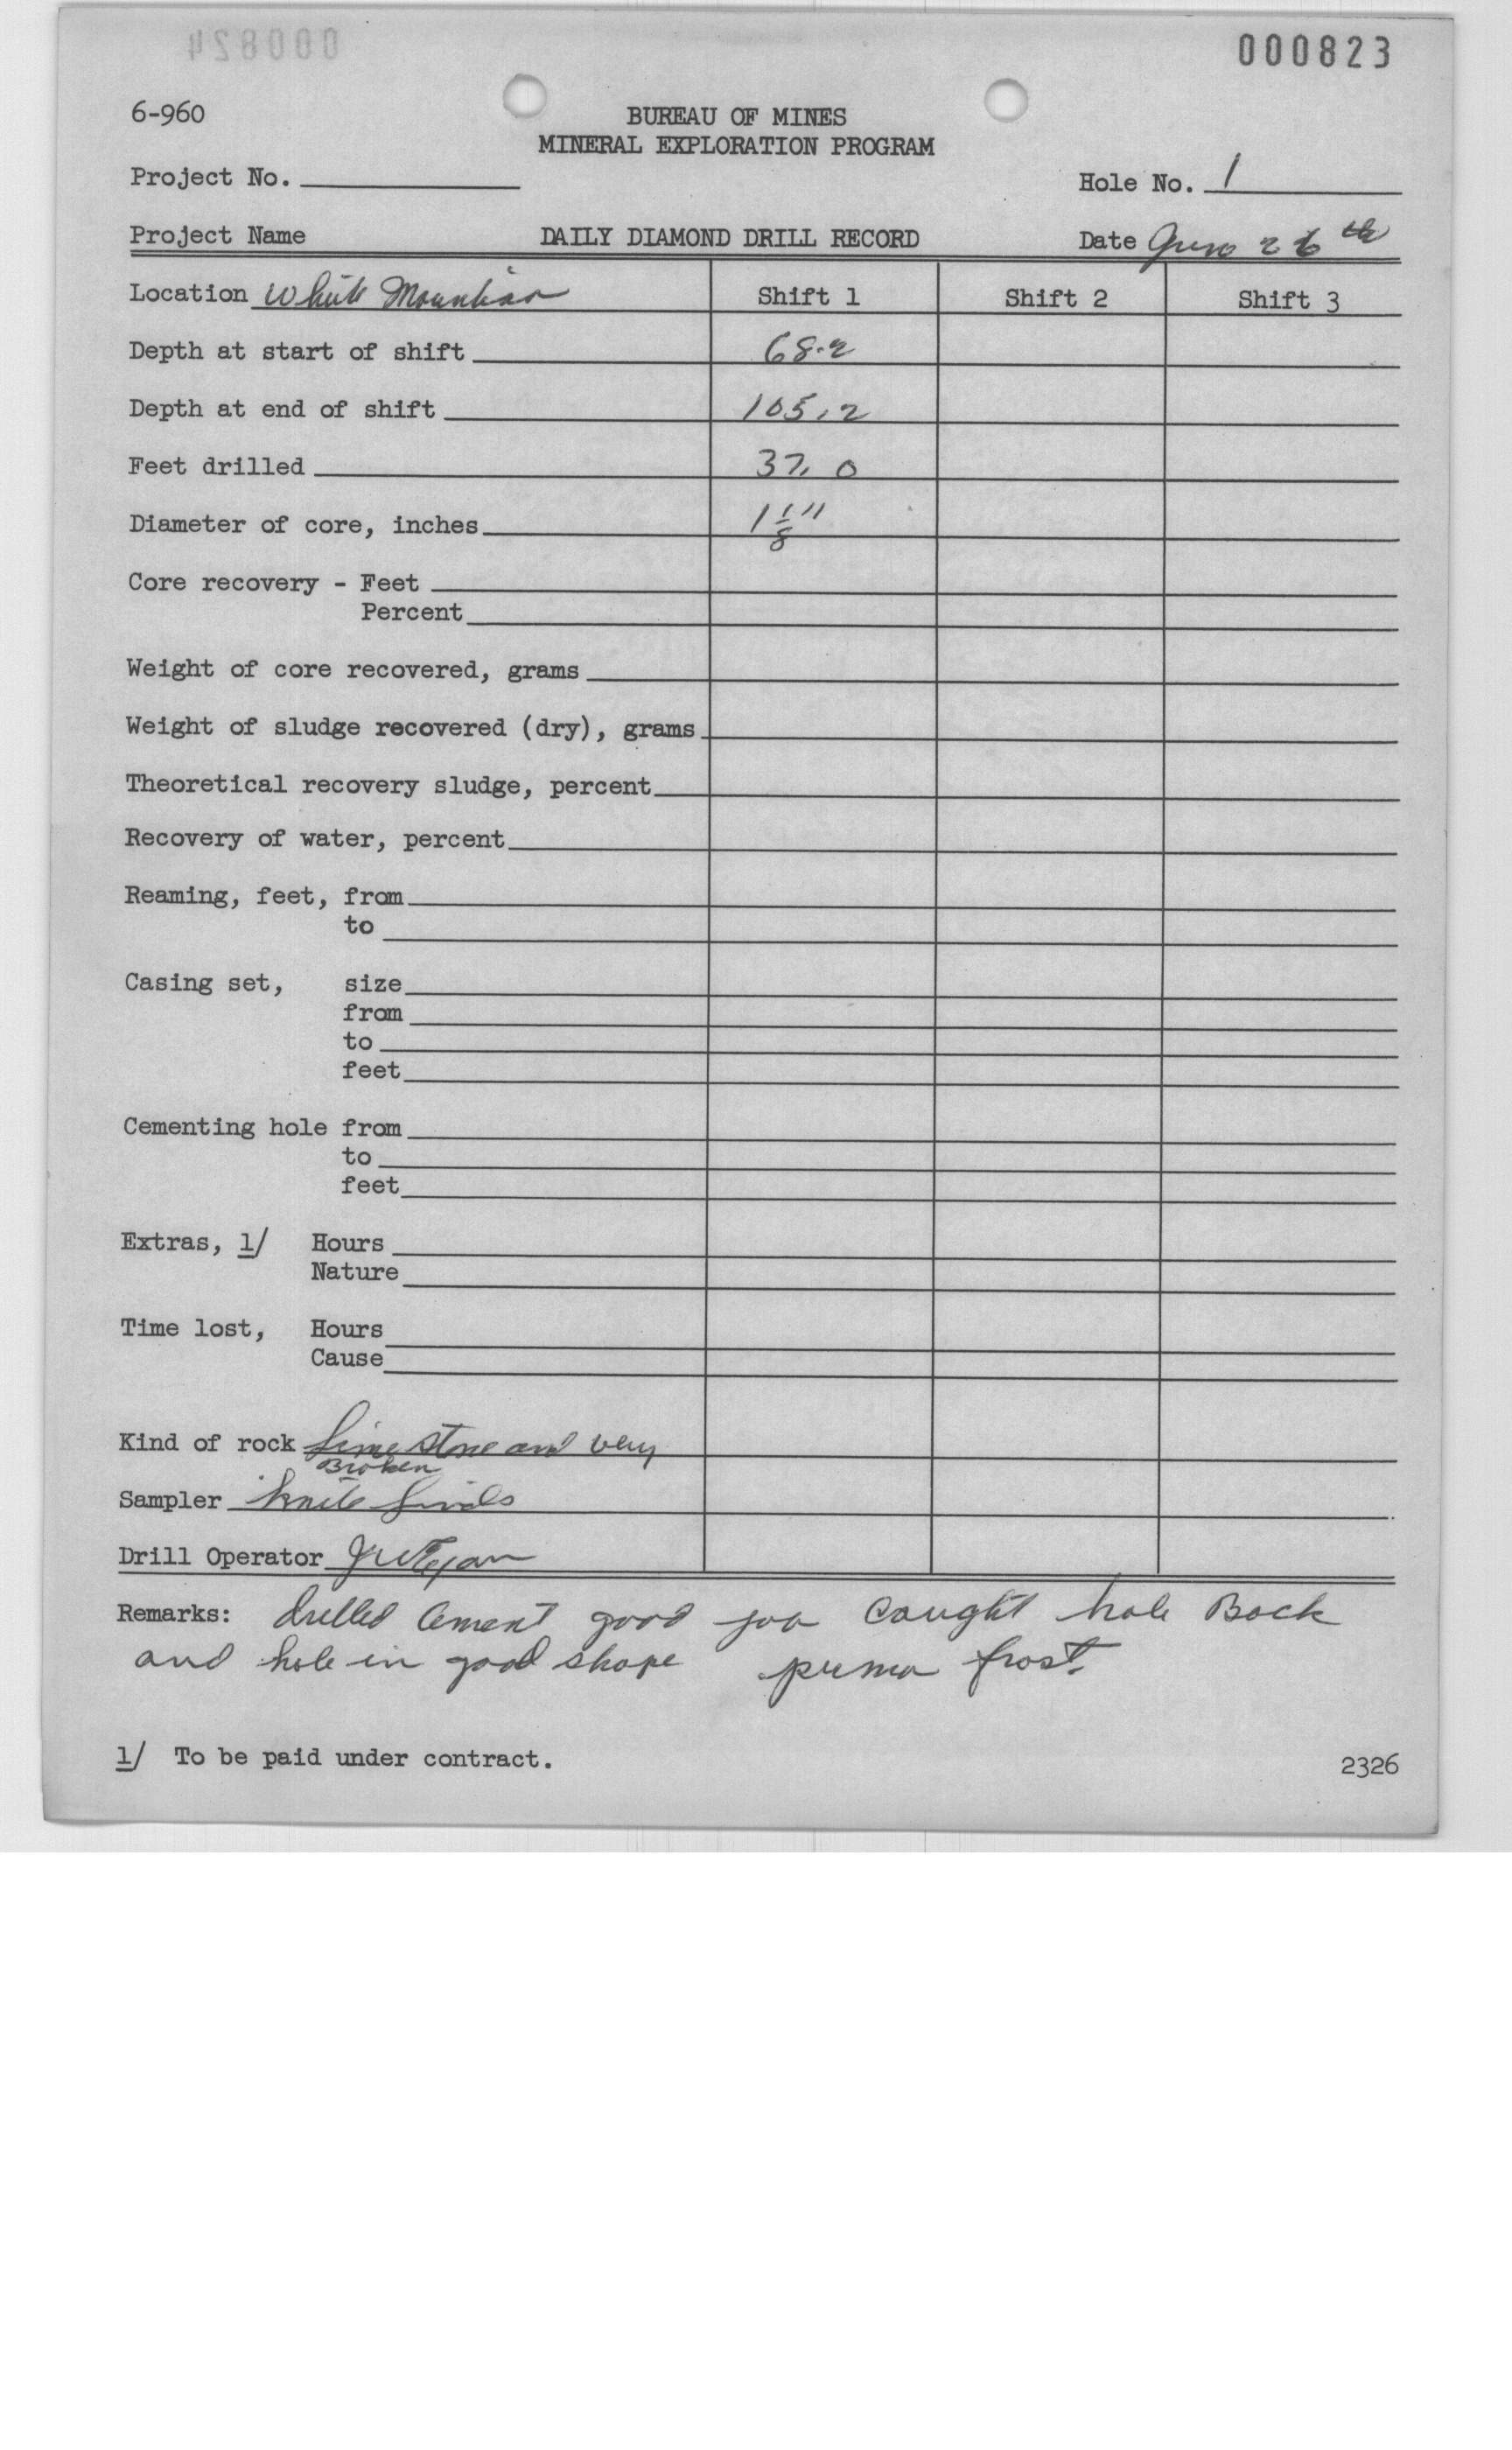 000823
6-960
BUREAU OF MINES
MINERAL EXPLORATION PROGRAM
Project No.
Hole No. 1
Project Name DAILY DIAMOND DRILL RECORD Date June 26th
Location White Mountain Shift 1 Shift 2 Shift 3
Depth at start of shift 68.2
Depth at end of shift 105.2
Feet drilled 37.0
Diameter of core, inches 1 1/8"
Core recovery - Feet
Percent
Weight of core recovered, grams
Weight of sludge recovered (dry), grams
Theoretical recovery sludge, percent
Recovery of water, percent
Reaming, feet, from
to
Casing set, size
from
to
feet
Cementing hole from
to
feet
Extras, 1/ Hours
Nature
Time lost, Hours
Cause
Kind of rock Lime stone and very
Broken
Sampler
Drill Operator
Remarks: drilled Cement good job Caught hole Back
and hole in good shape perma frost.
1/ To be paid under contract.
2326